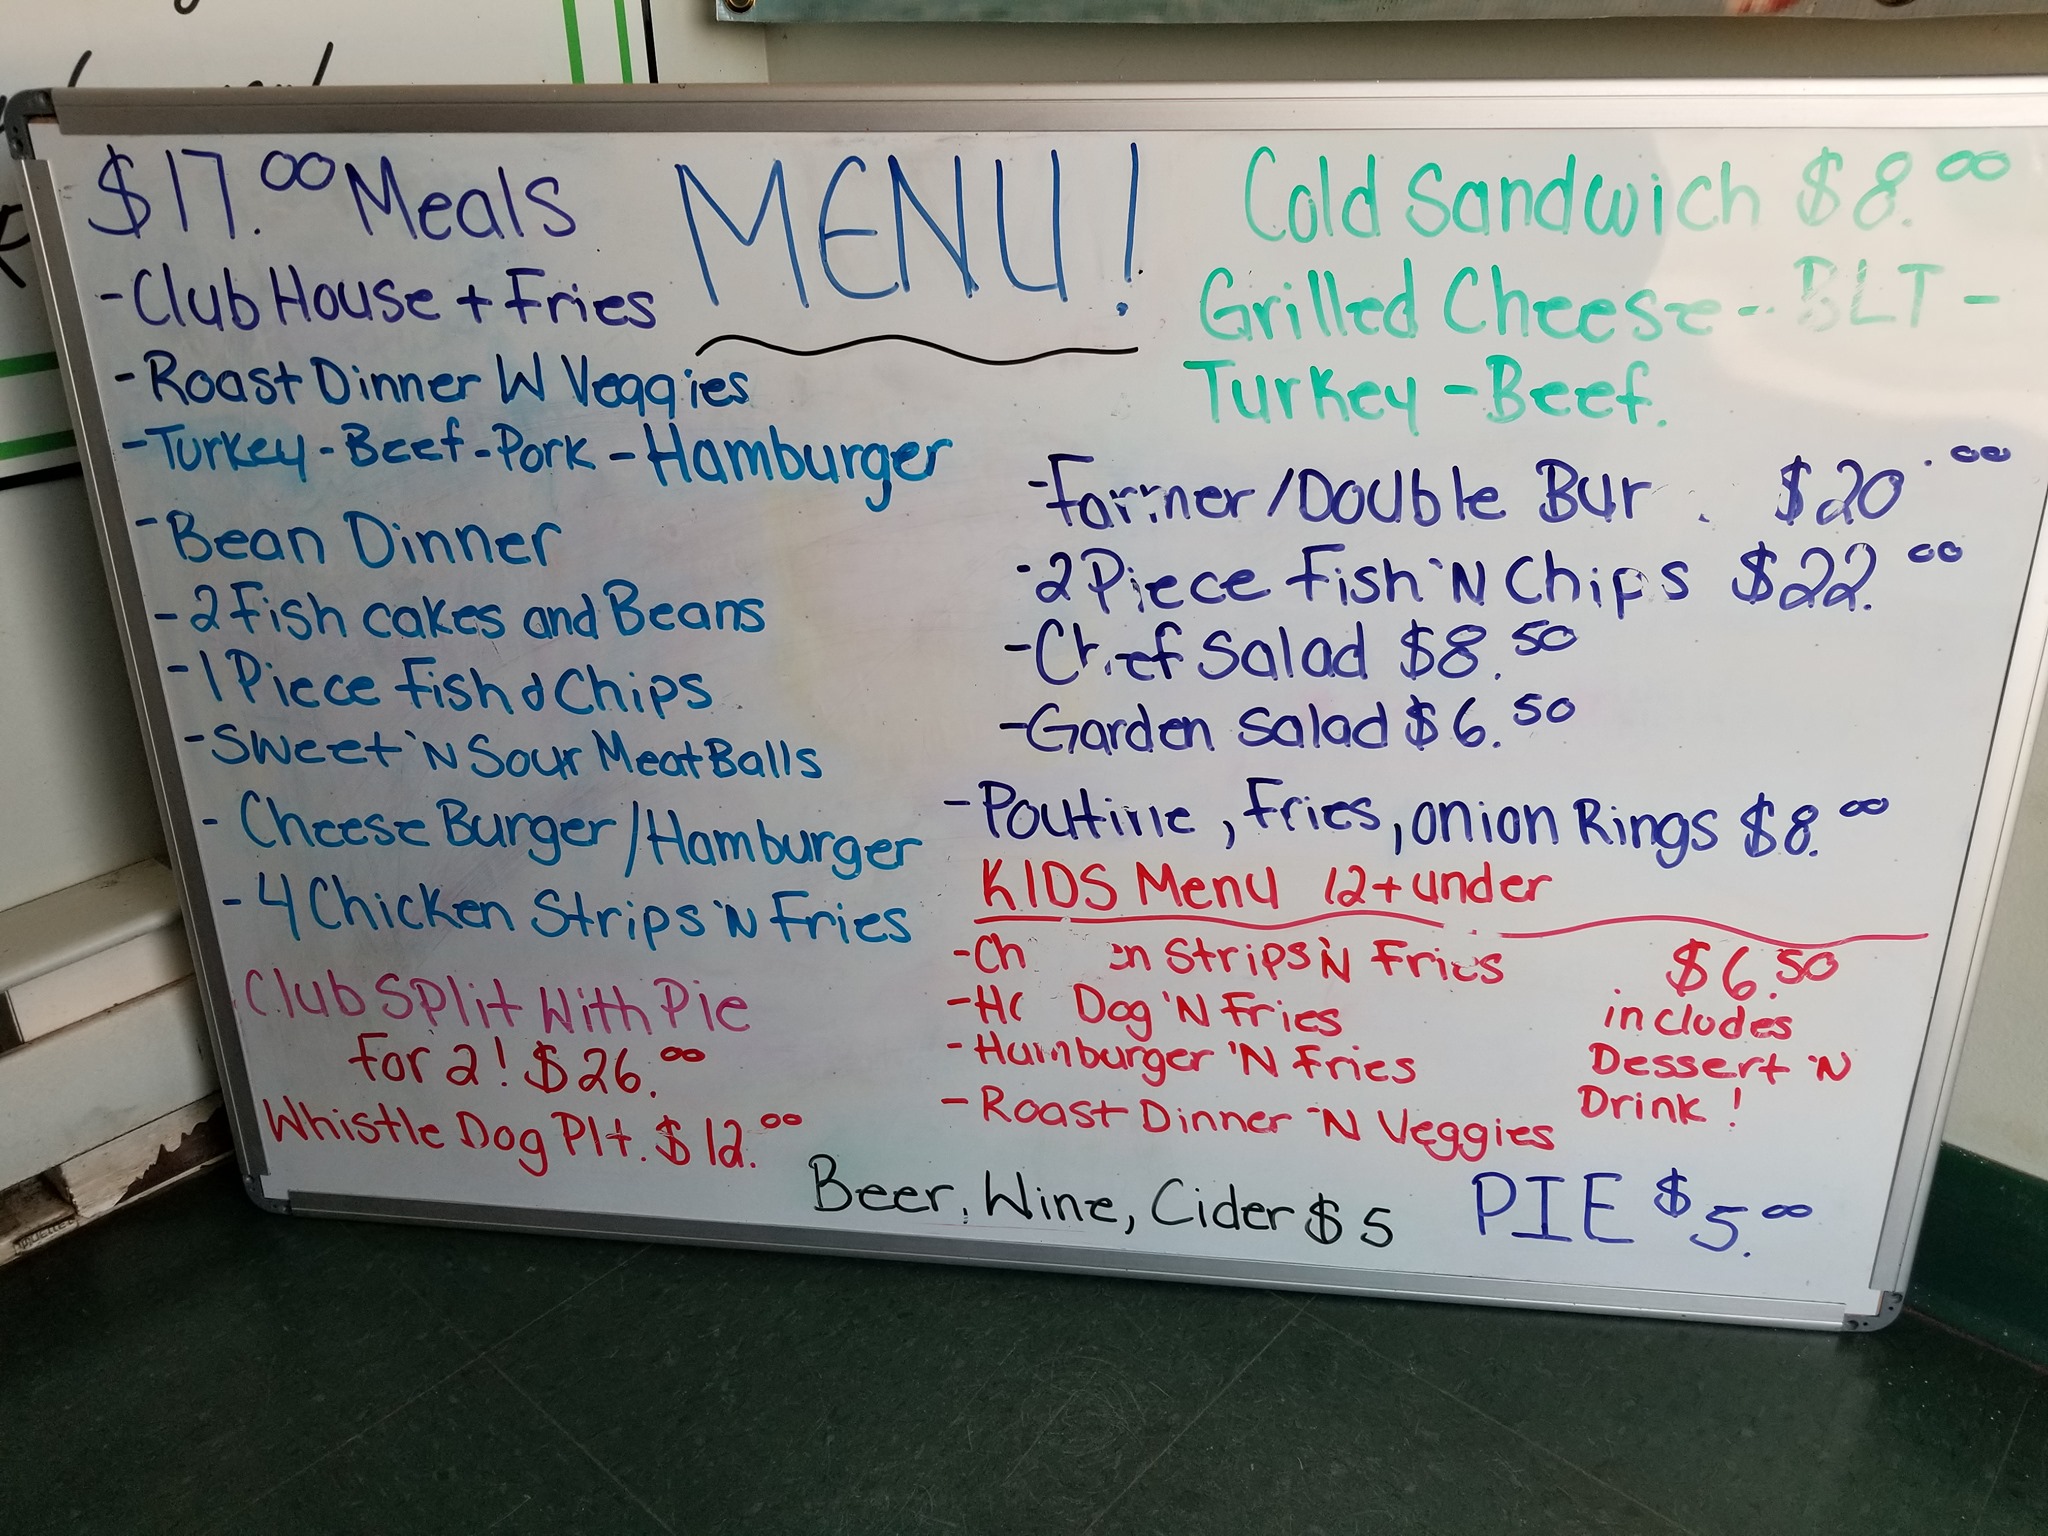 MENU!
$17.00 Meals
- Club House + Fries
- Roast Dinner W Veggies
- Turkey - Beef - Pork - Hamburger
- Bean Dinner
- 2 Fish cakes and Beans
- 1 Piece Fish & Chips
- Sweet 'N Sour Meat Balls
- Cheese Burger / Hamburger
- 4 Chicken Strips 'N Fries
Club Split With Pie
For 2! $26.00
Whistle Dog Plt. $12.00
Cold Sandwich $8.00
Grilled Cheese - BLT -
Turkey - Beef.
- Farmer / Double Bur $20.00
- 2 Piece Fish 'N Chips $22.00
- Chef Salad $8.50
- Garden Salad $6.50
- Poutine, Fries, Onion Rings $8.00
KIDS Menu 12 + under
- Ch en Strips 'N Fries
- Ho Dog 'N Fries
- Hamburger 'N Fries
- Roast Dinner 'N Veggies
$6.50
includes
Dessert 'N
Drink!
Beer, Wine, Cider $5
PIE $5.00